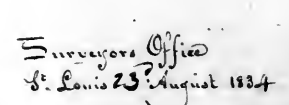 Surveyors Office
St. Louis 23d August 1834